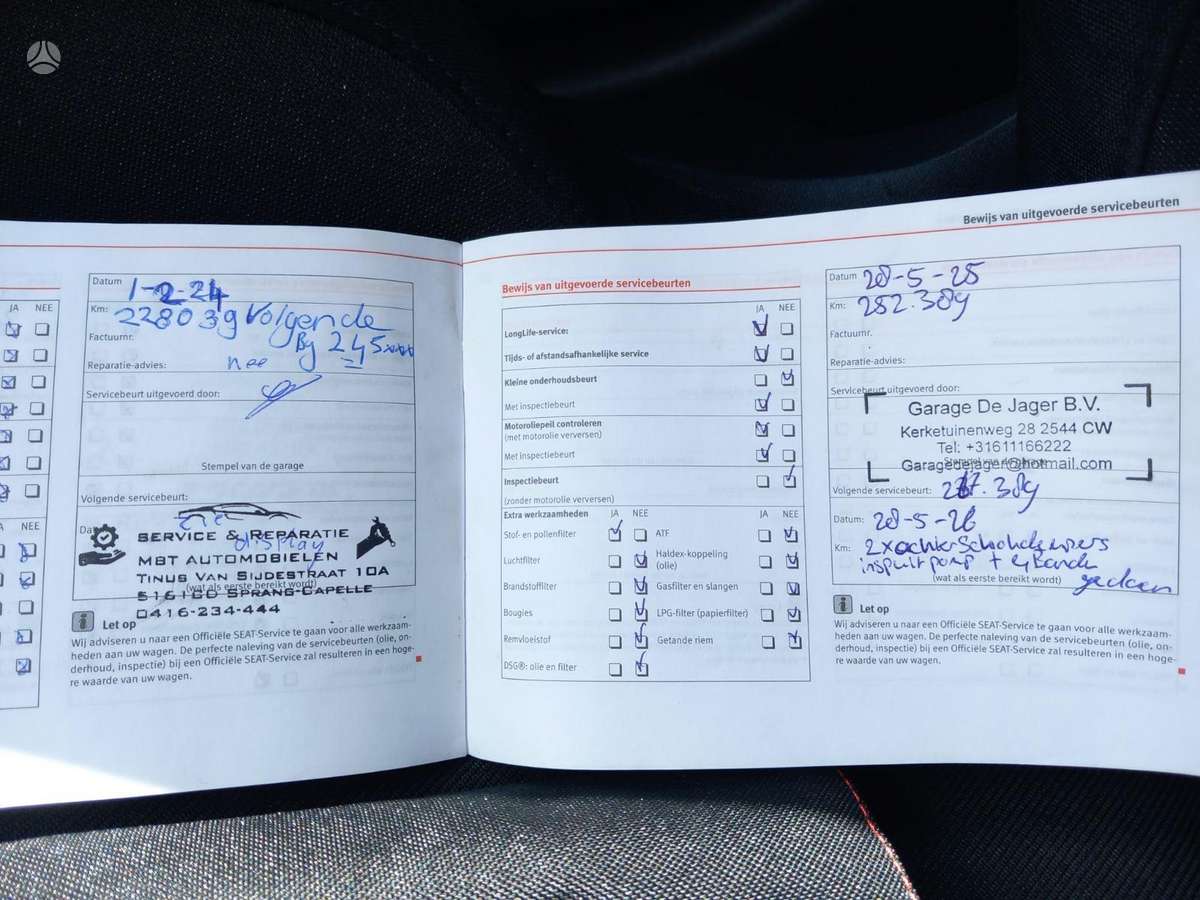 JA NEE
NEE
Datum 1-2-24
Km: 228039 Volgende
Factuurnr. By 245xxx
Reparatie-advies: nee
Servicebeurt uitgevoerd door:
Stempel van de garage
Volgende servicebeurt:
zie
SERVICE & REPARATIE
display
MBT AUTOMOBIELEN
TINUS VAN SIJDESTRAAT 10A
(wat als eerste bereikt wordt)
5161CD SPRANG-CAPELLE
0416-234-444
Let op
Wij adviseren u naar een Officiële SEAT-Service te gaan voor alle werkzaam-
heden aan uw wagen. De perfecte naleving van de servicebeurten (olie, on-
derhoud, inspectie) bij een Officiële SEAT-Service zal resulteren in een hoge-
re waarde van uw wagen.
Bewijs van uitgevoerde servicebeurten
Bewijs van uitgevoerde servicebeurten
JA NEE
LongLife-service:
Tijds- of afstandsafhankelijke service
Kleine onderhoudsbeurt
Met inspectiebeurt
Motoroliepeil controleren
(met motorolie verversen)
Met inspectiebeurt
Inspectiebeurt
(zonder motorolie verversen)
Extra werkzaamheden JA NEE JA NEE
Stof- en pollenfilter ATF
Luchtfilter Haldex-koppeling
(olie)
Brandstoffilter Gasfilter en slangen
Bougies LPG-filter (papierfilter)
Remvloeistof Getande riem
DSG®: olie en filter
Datum 28-5-25
Km: 252.389
Factuurnr.
Reparatie-advies:
Servicebeurt uitgevoerd door:
Garage De Jager B.V.
Kerketuinenweg 28 2544 CW
Tel: +31611166222
Garagedejager@hotmail.com
Volgende servicebeurt: 267.389
Datum: 28-5-26
Km: 2x achter Schokdempers
inspuit pomp + 4 Bande
(wat als eerste bereikt wordt) gedaen
Let op
Wij adviseren u naar een Officiële SEAT-Service te gaan voor alle werkzaam-
heden aan uw wagen. De perfecte naleving van de servicebeurten (olie, on-
derhoud, inspectie) bij een Officiële SEAT-Service zal resulteren in een hoge-
re waarde van uw wagen.